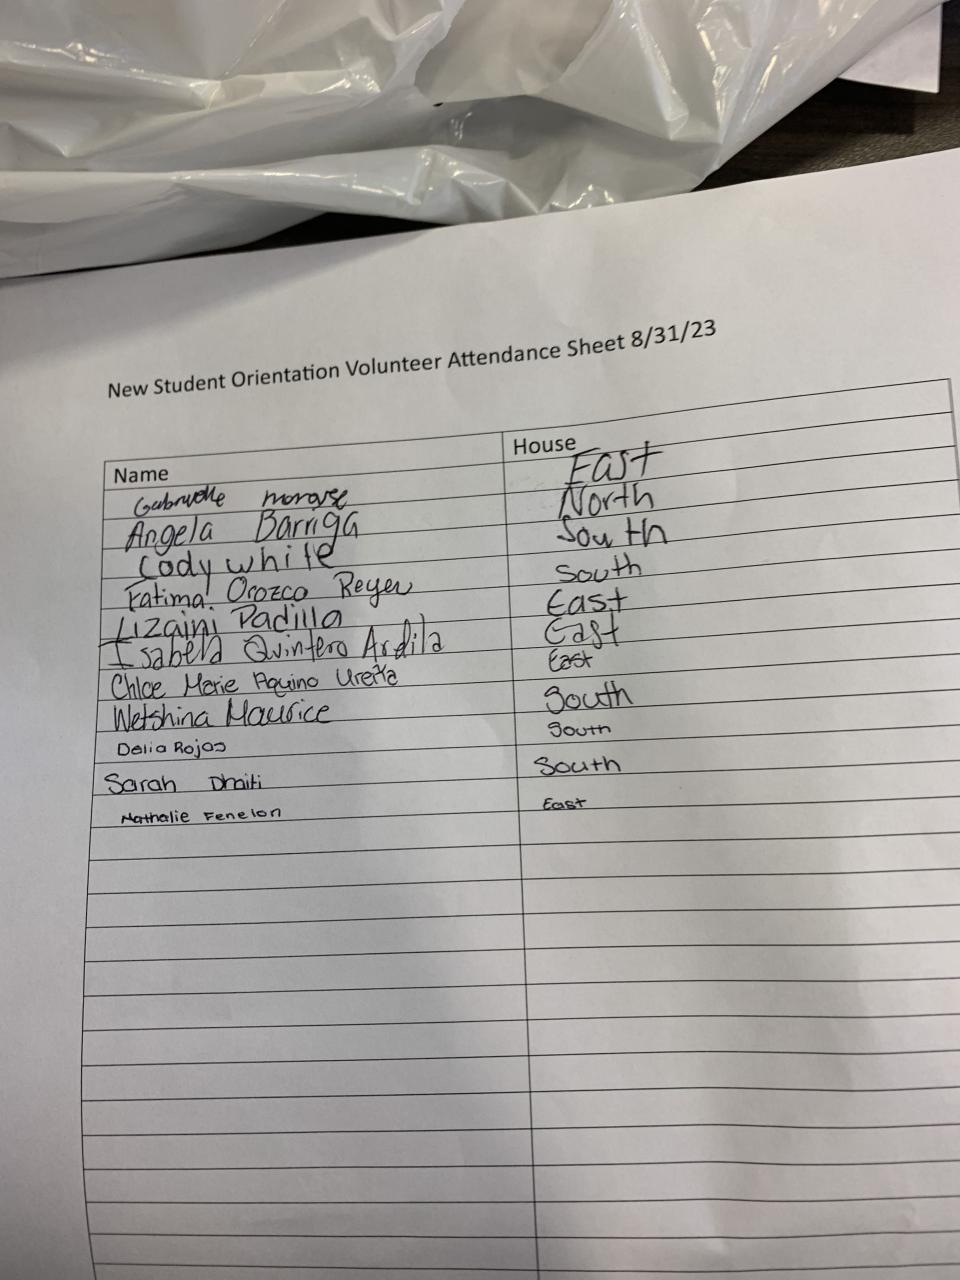 New Student Orientation Volunteer Attendance Sheet 8/31/23
Name House
Gabrielle morose East
Angela Barriga North
Cody white South
Fatima Orozco Reyes South
Lizaini Padilla East
Isabela Quintero Ardila East
Chloe Marie Aquino Ureña East
Wetshina Maurice South
Delia Rojas South
Sarah Dhaiti South
Nathalie Fenelon East